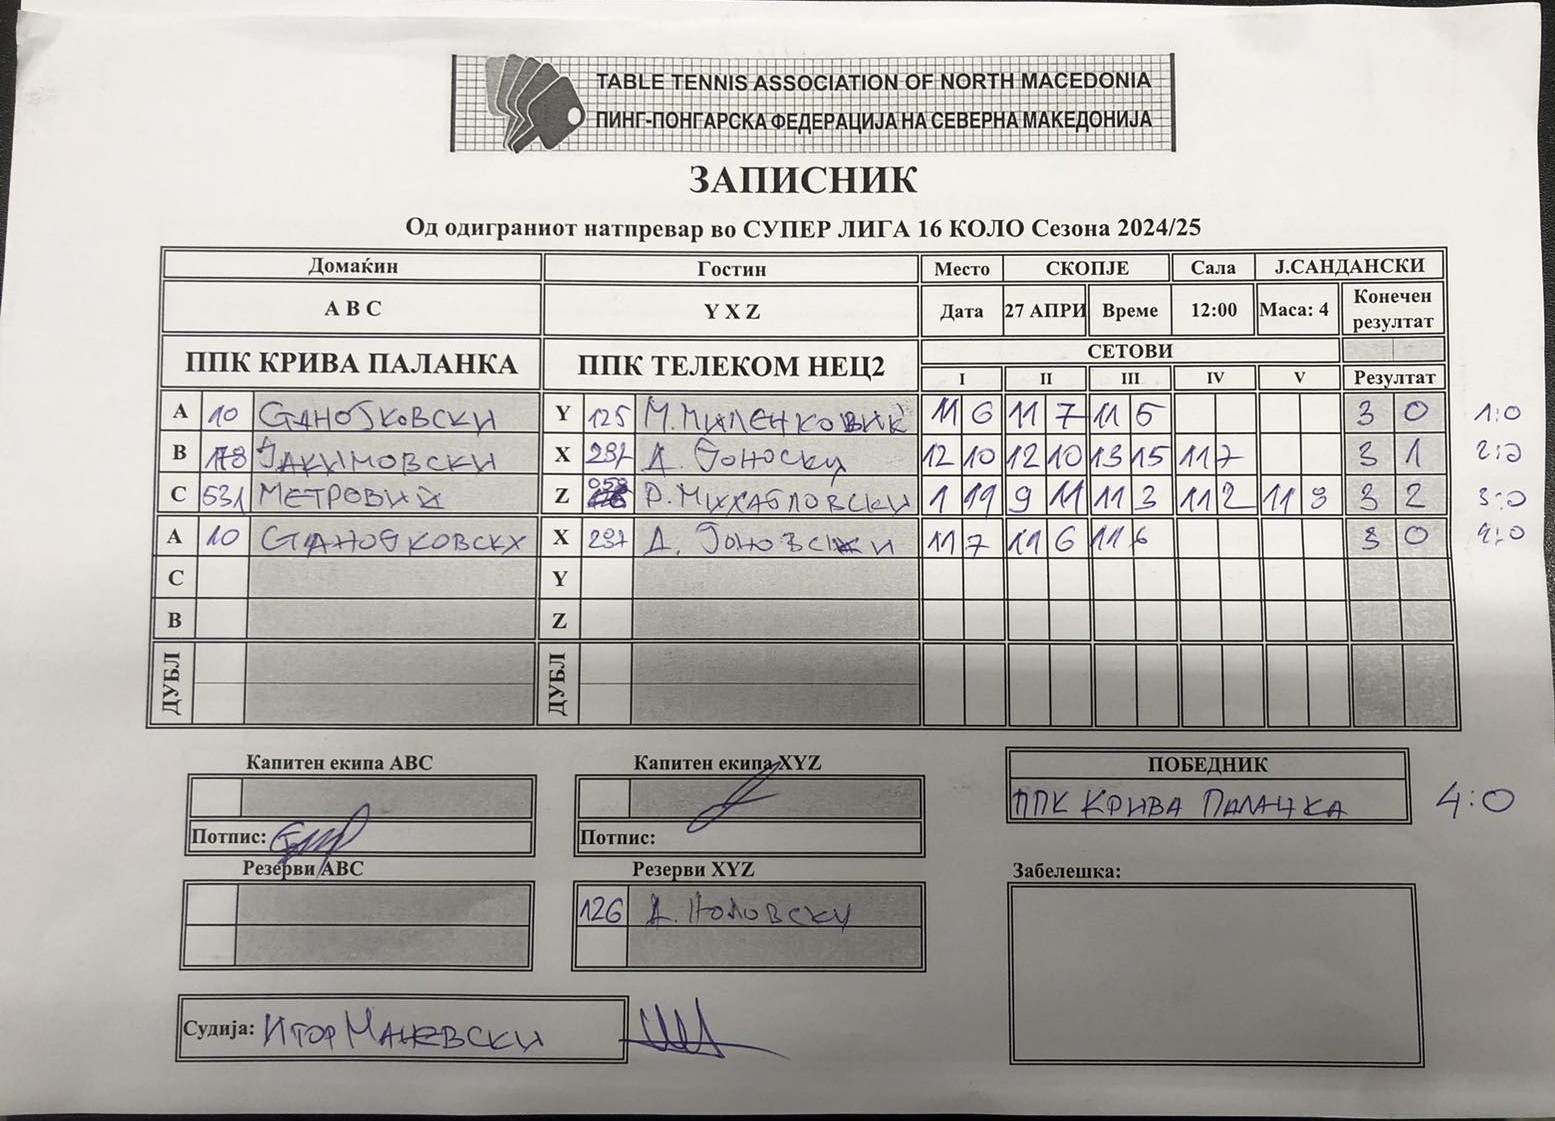 TABLE TENNIS ASSOCIATION OF NORTH MACEDONIA
ПИНГ-ПОНГАРСКА ФЕДЕРАЦИЈА НА СЕВЕРНА МАКЕДОНИЈА
ЗАПИСНИК
Од одиграниот натпревар во СУПЕР ЛИГА 16 КОЛО Сезона 2024/25
Домаќин Гостин Место СКОПЈЕ Сала Ј.САНДАНСКИ
A B C Y X Z Дата 27 АПРИ Време 12:00 Маса: 4 Конечен резултат
ППК КРИВА ПАЛАНКА ППК ТЕЛЕКОМ НЕЦ2 СЕТОВИ
I II III IV V Резултат
A 10 СТАНОЈКОВСКИ Y 125 М. МИЛЕНКОВИЌ 11 6 11 7 11 5 3 0 1:0
B 178 ЈАКИМОВСКИ X 297 Д. 12 10 12 10 13 15 11 7 3 1 2:0
C 531 МЕТРОВИЌ Z 058 Р. МИХАЈЛОВСКИ 1 11 9 11 11 3 11 2 11 9 3 2 3:0
A 10 СТАНОЈКОВСКИ X 297 Д. 11 7 11 6 11 6 3 0 4:0
C Y
B Z
ДУБЛ ДУБЛ
Капитен екипа ABC Капитен екипа XYZ ПОБЕДНИК
ППК КРИВА ПАЛАНКА 4:0
Потпис: Потпис:
Резерви ABC Резерви XYZ Забелешка:
126 Д.
Судија: ИГОР МАНЕВСКИ